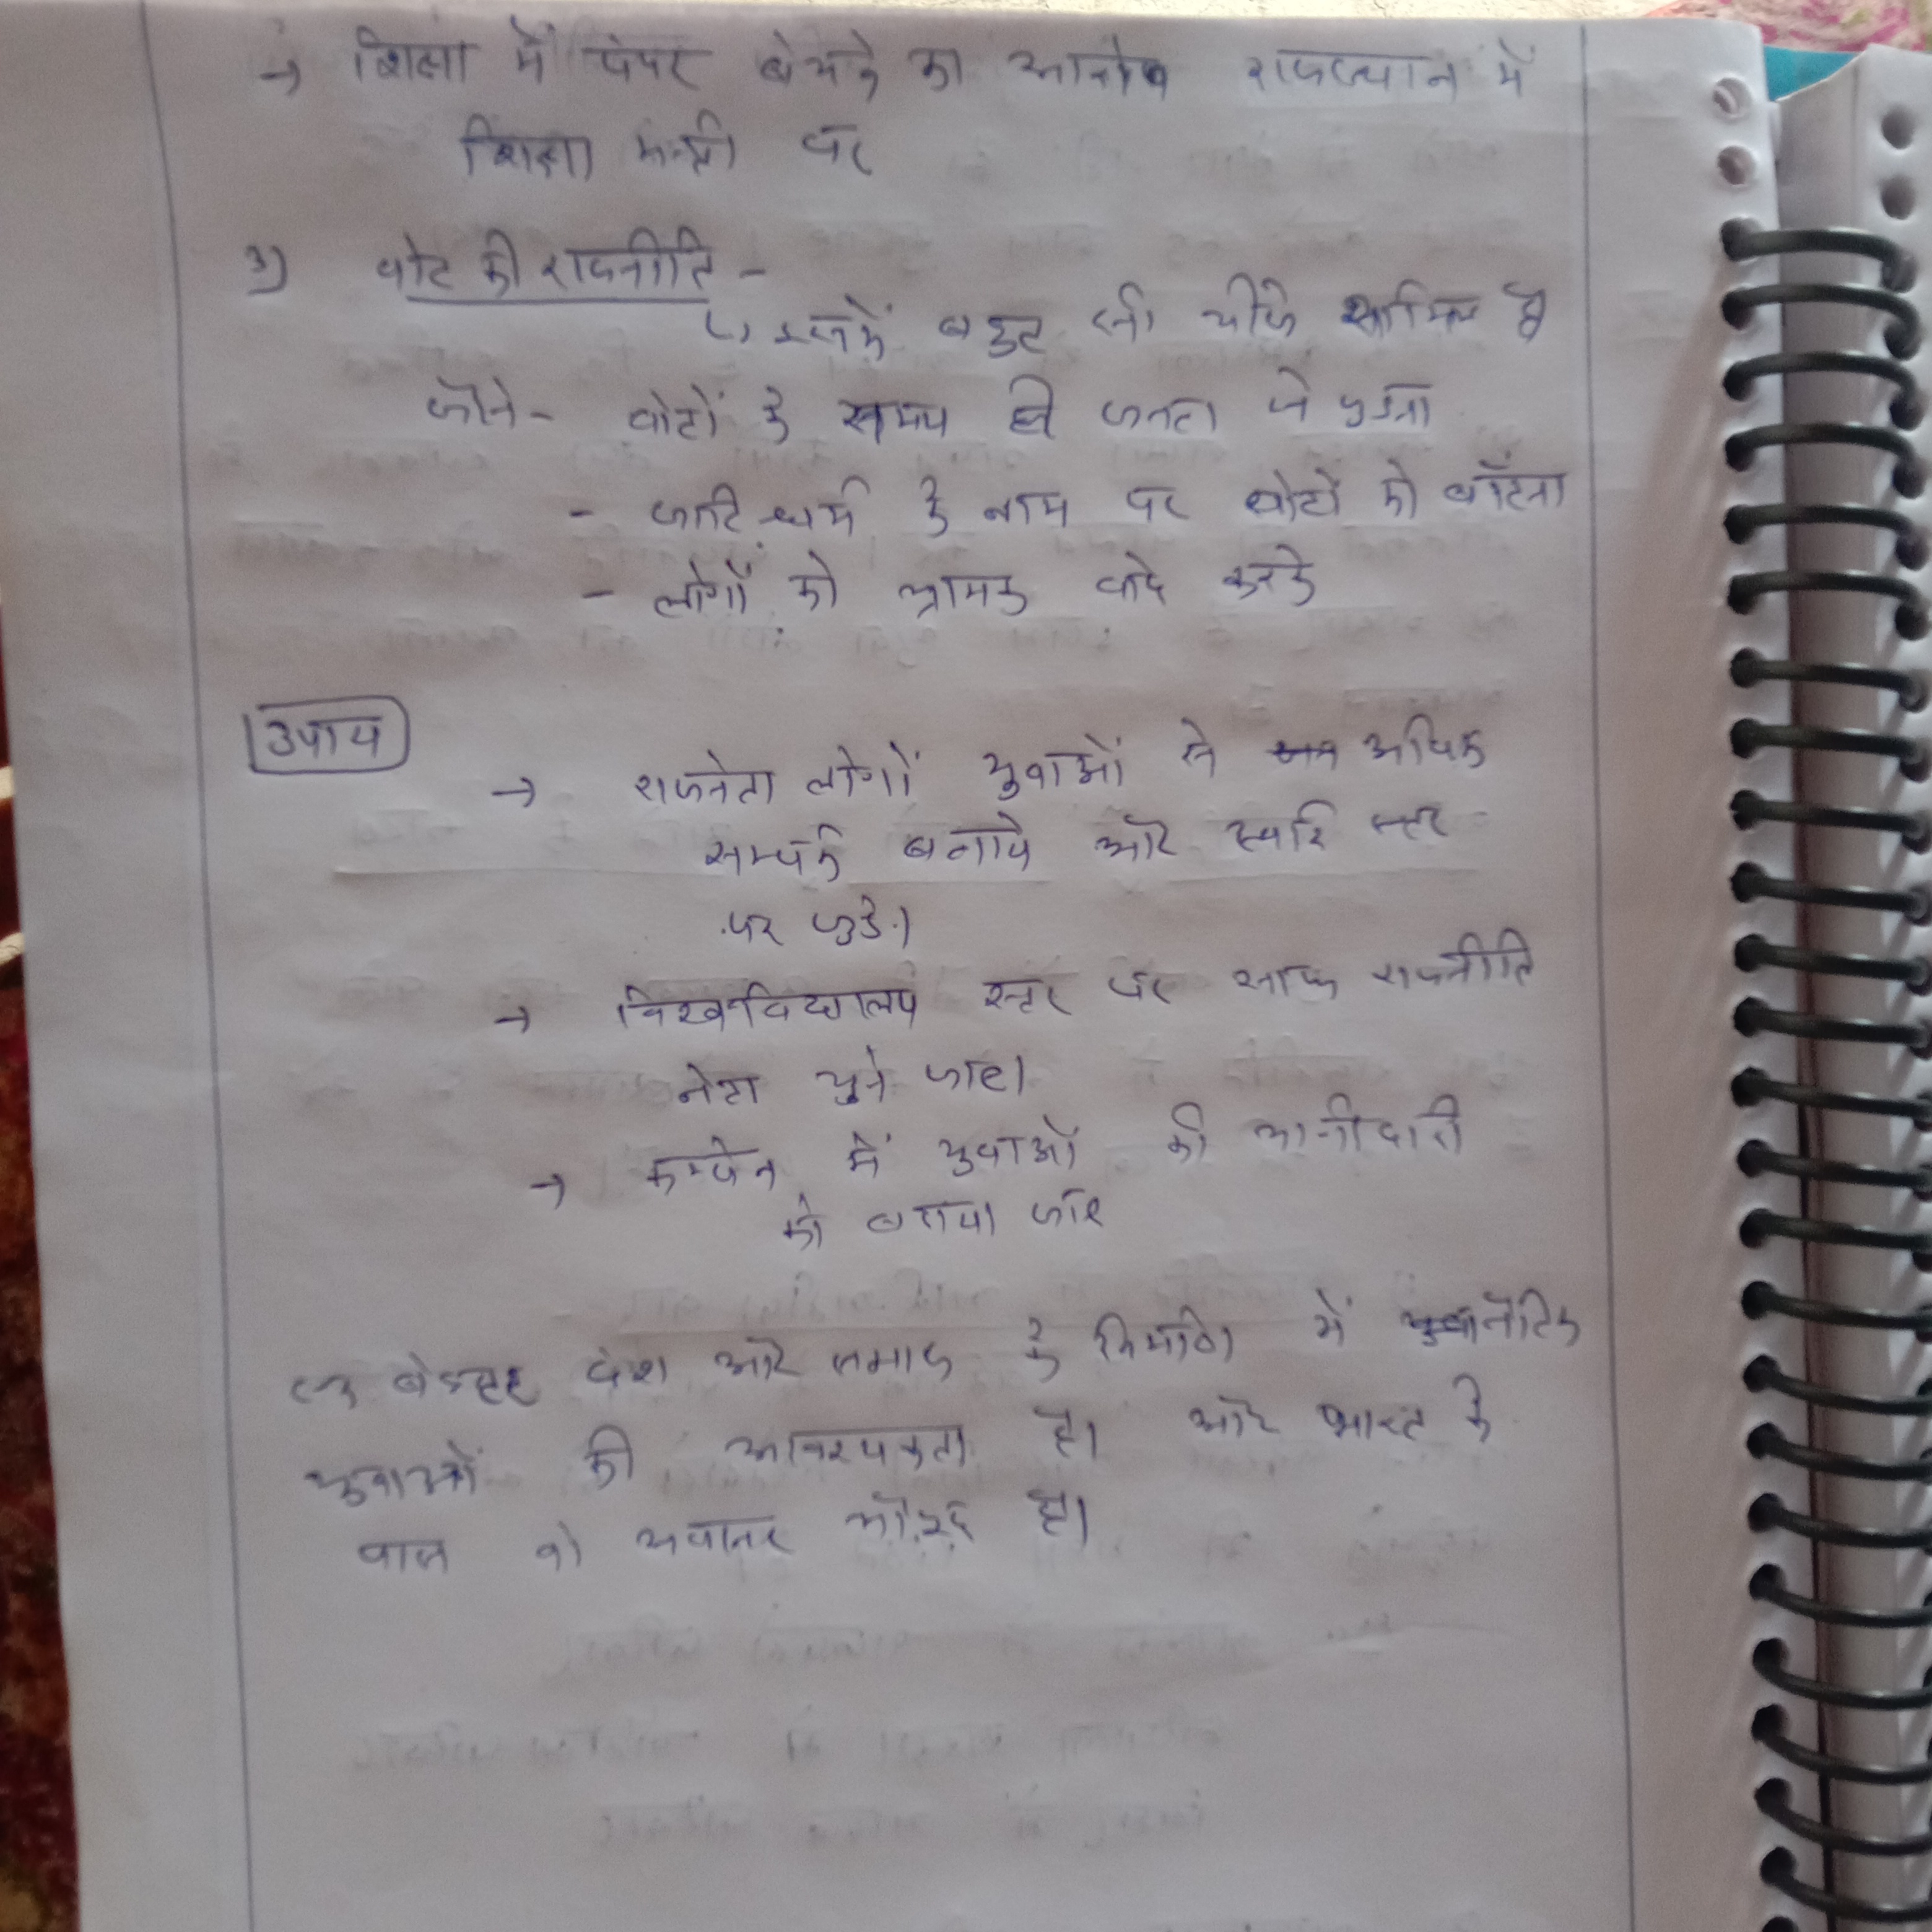 → शिक्षा में पेपर बेचने का आरोप राजस्थान में
शिक्षा मन्त्री पर
3) वोट की राजनीति -
↳ इनमें बहुत सी चीजे शामिल है
जैसे - वोटों के समय ही जनता से जुड़ना
- जाति धर्म के नाम पर वोटों को बाँटना
- लोगों को भ्रामक वादे करके
उपाय
→ राजनेता लोगों युवाओं से अधिक
सम्पर्क बनाये और स्तर
पर जुडे।
→ विश्वविद्यालय स्तर पर साफ राजनीति
नेता चुने जाए।
→ कम्पेन में युवाओं की भागीदारी
को बढाया जाए
↳ बेहतर देश और समाज के निर्माण में नैतिक
युवाओं की आवश्यकता है। और भारत के
पास वो अवसर मौजुद है।